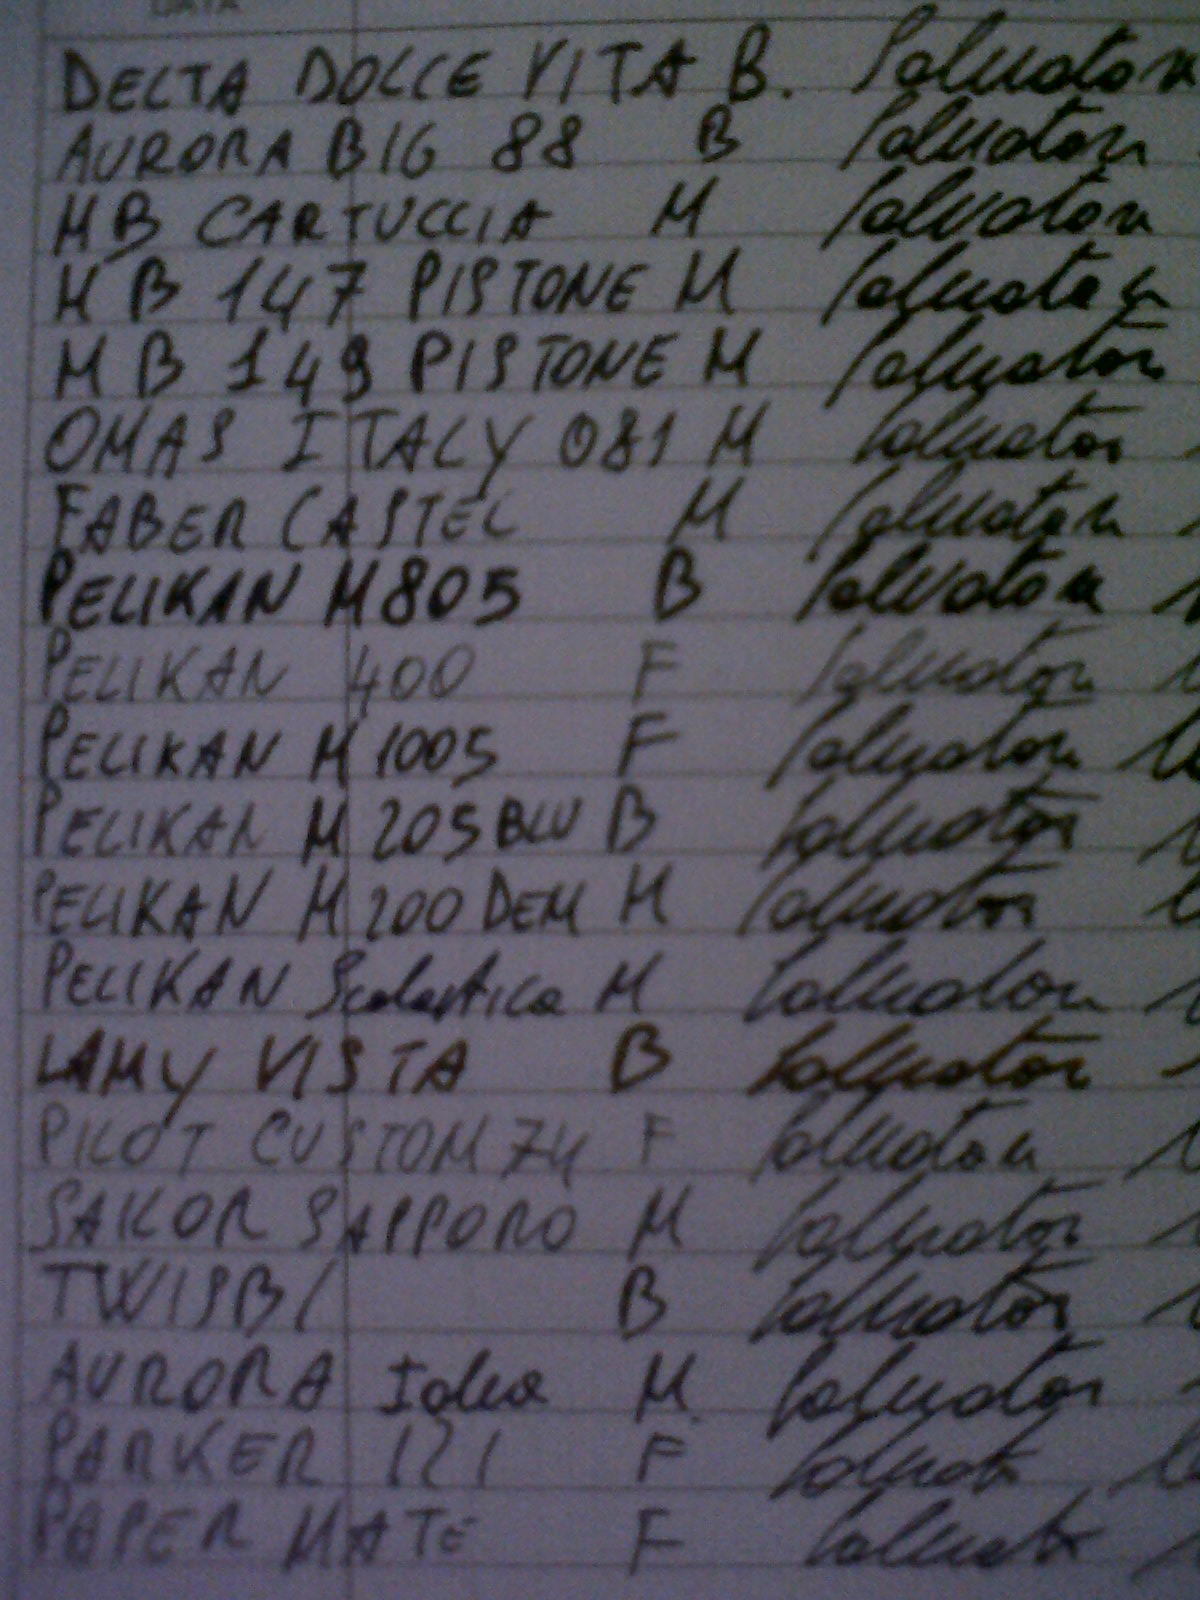 DATA
DELTA DOLCE VITA B. Salvatore
AURORA BIG 88 B Salvatore
MB CARTUCCIA M Salvatore
MB 147 PISTONE M Salvatore
MB 149 PISTONE M Salvatore
OMAS ITALY 081 M Salvatore
FABER CASTEL M Salvatore
PELIKAN M805 B Salvatore
PELIKAN 400 F Salvatore
PELIKAN M1005 F Salvatore
PELIKAN M205 BLU B Salvatore
PELIKAN M200 DEM M Salvatore
PELIKAN Scolastica M Salvatore
LAMY VISTA B Salvatore
PILOT CUSTOM 74 F Salvatore
SAILOR SAPPORO M Salvatore
TWISBI B Salvatore
AURORA Idea M Salvatore
PARKER 121 F Salvatore
PAPER MATE F Salvatore